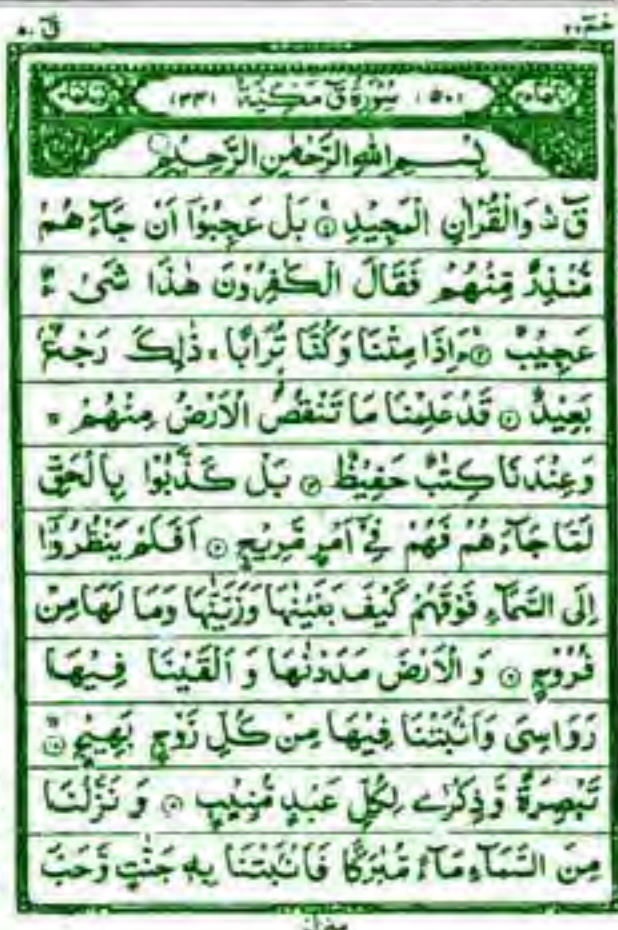 قٓ ٥٠
حٰمٓ ٢٦
(٥٠) سُوْرَةُ قٓ مَكِّيَّةٌ (٣٤)
بِسْمِ اللهِ الرَّحْمٰنِ الرَّحِيْمِ
قٓ ۛ وَالْقُرْاٰنِ الْمَجِيْدِ ۝ بَلْ عَجِبُوْٓا اَنْ جَآءَهُمْ
مُّنْذِرٌ مِّنْهُمْ فَقَالَ الْكٰفِرُوْنَ هٰذَا شَىْءٌ
عَجِيْبٌ ۝ ءَاِذَا مِتْنَا وَكُنَّا تُرَابًا ۚ ذٰلِكَ رَجْعٌۢ
بَعِيْدٌ ۝ قَدْ عَلِمْنَا مَا تَنْقُصُ الْاَرْضُ مِنْهُمْ ۚ
وَعِنْدَنَا كِتٰبٌ حَفِيْظٌ ۝ بَلْ كَذَّبُوْا بِالْحَقِّ
لَمَّا جَآءَهُمْ فَهُمْ فِىْٓ اَمْرٍ مَّرِيْجٍ ۝ اَفَلَمْ يَنْظُرُوْٓا
اِلَى السَّمَآءِ فَوْقَهُمْ كَيْفَ بَنَيْنٰهَا وَزَيَّنّٰهَا وَمَا لَهَا مِنْ
فُرُوْجٍ ۝ وَ الْاَرْضَ مَدَدْنٰهَا وَ اَلْقَيْنَا فِيْهَا
رَوَاسِىَ وَاَنْۢبَتْنَا فِيْهَا مِنْ كُلِّ زَوْجٍۭ بَهِيْجٍ ۝
تَبْصِرَةً وَّذِكْرٰى لِكُلِّ عَبْدٍ مُّنِيْبٍ ۝ وَ نَزَّلْنَا
مِنَ السَّمَآءِ مَآءً مُّبٰرَكًا فَاَنْۢبَتْنَا بِهٖ جَنّٰتٍ وَّحَبَّ